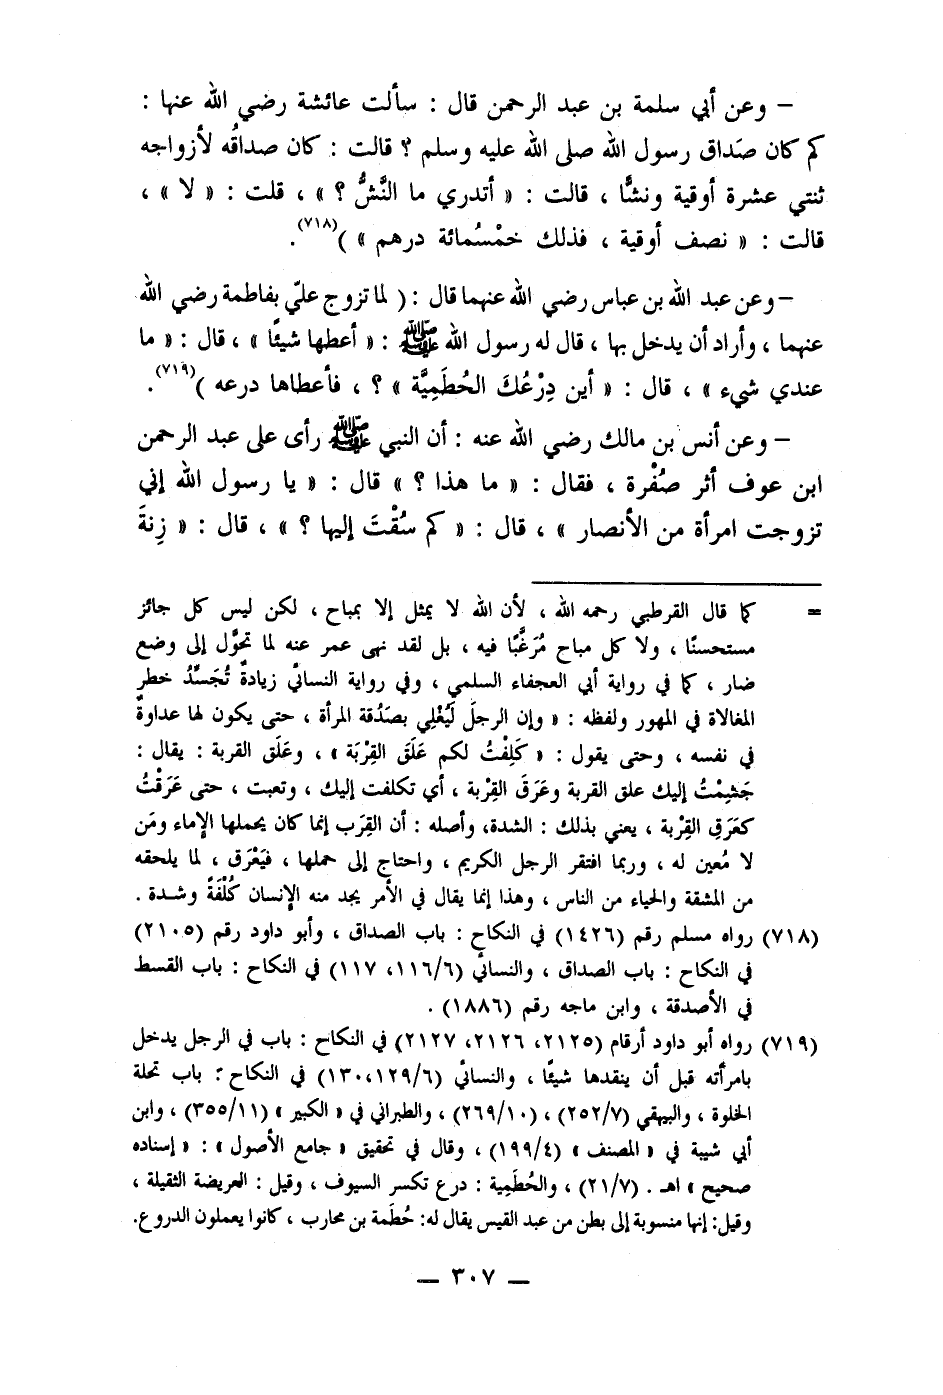 – وعن أبي سلمة بن عبد الرحمن قال : سألت عائشة رضي الله عنها :
كم كان صَداق رسول الله صلى الله عليه وسلم ؟ قالت : كان صداقُه لأزواجه
ثنتي عشرة أوقية ونشًّا ، قالت : « أتدري ما النَّشُّ ؟ » ، قلت : « لا » ،
قالت : « نصف أوقية ، فذلك خمْسُمائة درهم » )(٧١٨).
– وعن عبد الله بن عباس رضي الله عنهما قال : ( لما تزوج عليّ بفاطمة رضي الله
عنهما ، وأراد أن يدخل بها ، قال له رسول الله ﷺ : « أعطها شيئًا » ، قال : « ما
عندي شيء » ، قال : « أين دِرْعُكَ الحُطَمِيَّة » ؟ ، فأعطاها درعه )(٧١٩).
– وعن أنس بن مالك رضي الله عنه : أن النبي ﷺ رأى على عبد الرحمن
ابن عوف أثر صُفْرة ، فقال : « ما هذا ؟ » قال : « يا رسول الله إني
تزوجت امرأة من الأنصار » ، قال : « كم سُقْتَ إليها ؟ » ، قال : « زِنةَ
= كما قال القرطبي رحمه الله ، لأن الله لا يمثل إلا بمباح ، لكن ليس كل جائز
مستحسنًا ، ولا كل مباح مُرَغَّبًا فيه ، بل لقد نهى عمر عنه لما تحوَّل إلى وضع
ضار ، كما في رواية أبي العجفاء السلمي ، وفي رواية النسائي زيادةٌ تُجَسِّدُ خطر
المغالاة في المهور ولفظه : « وإن الرجلَ لَيُغْلِي بصَدُقة المرأة ، حتى يكون لها عداوةٌ
في نفسه ، وحتى يقول : « كَلِفْتُ لكم عَلَقَ القِرْبَة » ، وعَلَق القربة : يقال :
جَشِمْتُ إليك علق القربة وعَرَقَ القِرْبة ، أي تكلفت إليك ، وتعبت ، حتى عَرَقْتُ
كعَرَقِ القِرْبة ، يعني بذلك : الشدة، وأصله : أن القِرَب إنما كان يحملها الإماء ومَن
لا مُعين له ، وربما افتقر الرجل الكريم ، واحتاج إلى حملها ، فيَعْرَق ، لما يلحقه
من المشقة والحياء من الناس ، وهذا إنما يقال في الأمر يجد منه الإنسان كُلْفَةً وشدة .
(٧١٨) رواه مسلم رقم (١٤٢٦) في النكاح : باب الصداق ، وأبو داود رقم (٢١٠٥)
في النكاح : باب الصداق ، والنسائي (١١٦/٦، ١١٧) في النكاح : باب القسط
في الأصدقة ، وابن ماجه رقم (١٨٨٦) .
(٧١٩) رواه أبو داود أرقام (٢١٢٥، ٢١٢٦، ٢١٢٧) في النكاح : باب في الرجل يدخل
بامرأته قبل أن ينقدها شيئًا ، والنسائي (١٢٩/٦،١٣٠) في النكاح : باب تحلة
الخلوة ، والبيهقي (٢٥٢/٧) ، (٢٦٩/١٠) ، والطبراني في « الكبير » (٣٥٥/١١) ، وابن
أبي شيبة في « المصنف » (١٩٩/٤) ، وقال في تحقيق « جامع الأصول » : « إسناده
صحيح » اهـ . (٢١/٧) ، والحُطَمِية : درع تكسر السيوف ، وقيل : العريضة الثقيلة ،
وقيل: إنها منسوبة إلى بطن من عبد القيس يقال له: حُطَمة بن محارب ، كانوا يعملون الدروع.
— ٣٠٧ —